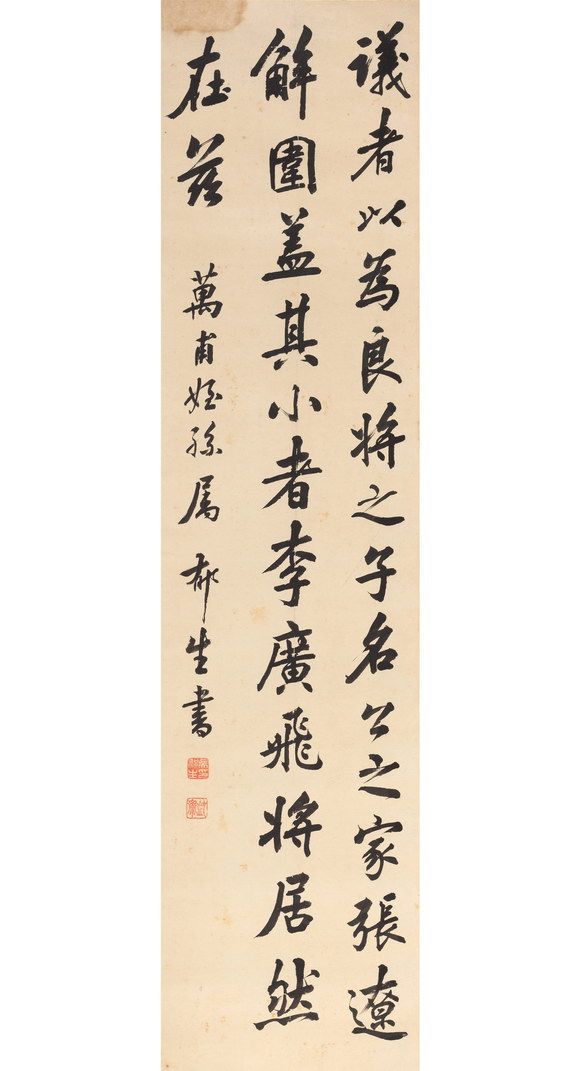 議者以為良將之子名公之家張遼
解圍蓋其小者李廣飛將居然
在茲
萬甫姪孫屬 郁生書